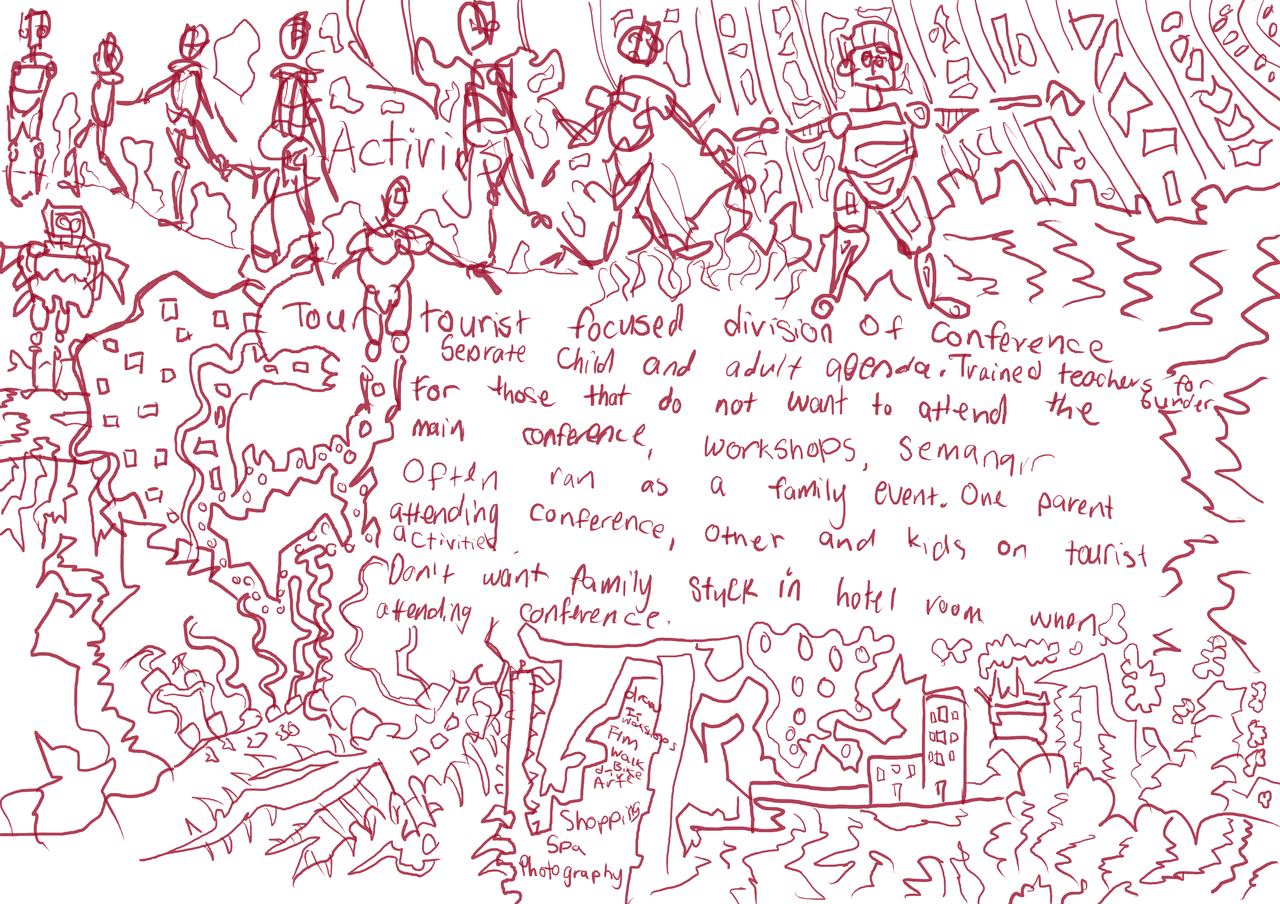 Activi
Tour tourist focused division of conference
Seprate child and adult agenda. Trained teachers for
For those that do not want to attend the
main conference, workshops,
Often ran as a family event. One parent
attending conference, other and kids on tourist
activities.
Don't want family stuck in hotel room when
attending conference.
workshops
Walk
Shopping
Spa
Photography